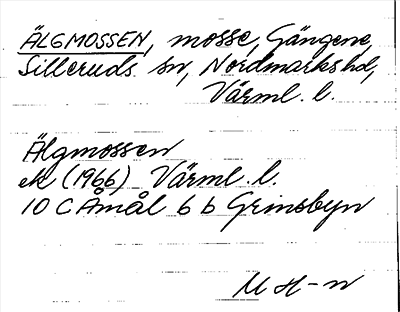 ÄLGMOSSEN, mosse, Gängene,
Silleruds sn, Nordmarks hd,
Värml. l.
Älgmossen
ek (1966) Värml. l.
10 C Åmål 6 b Grinsbyn
M H-n